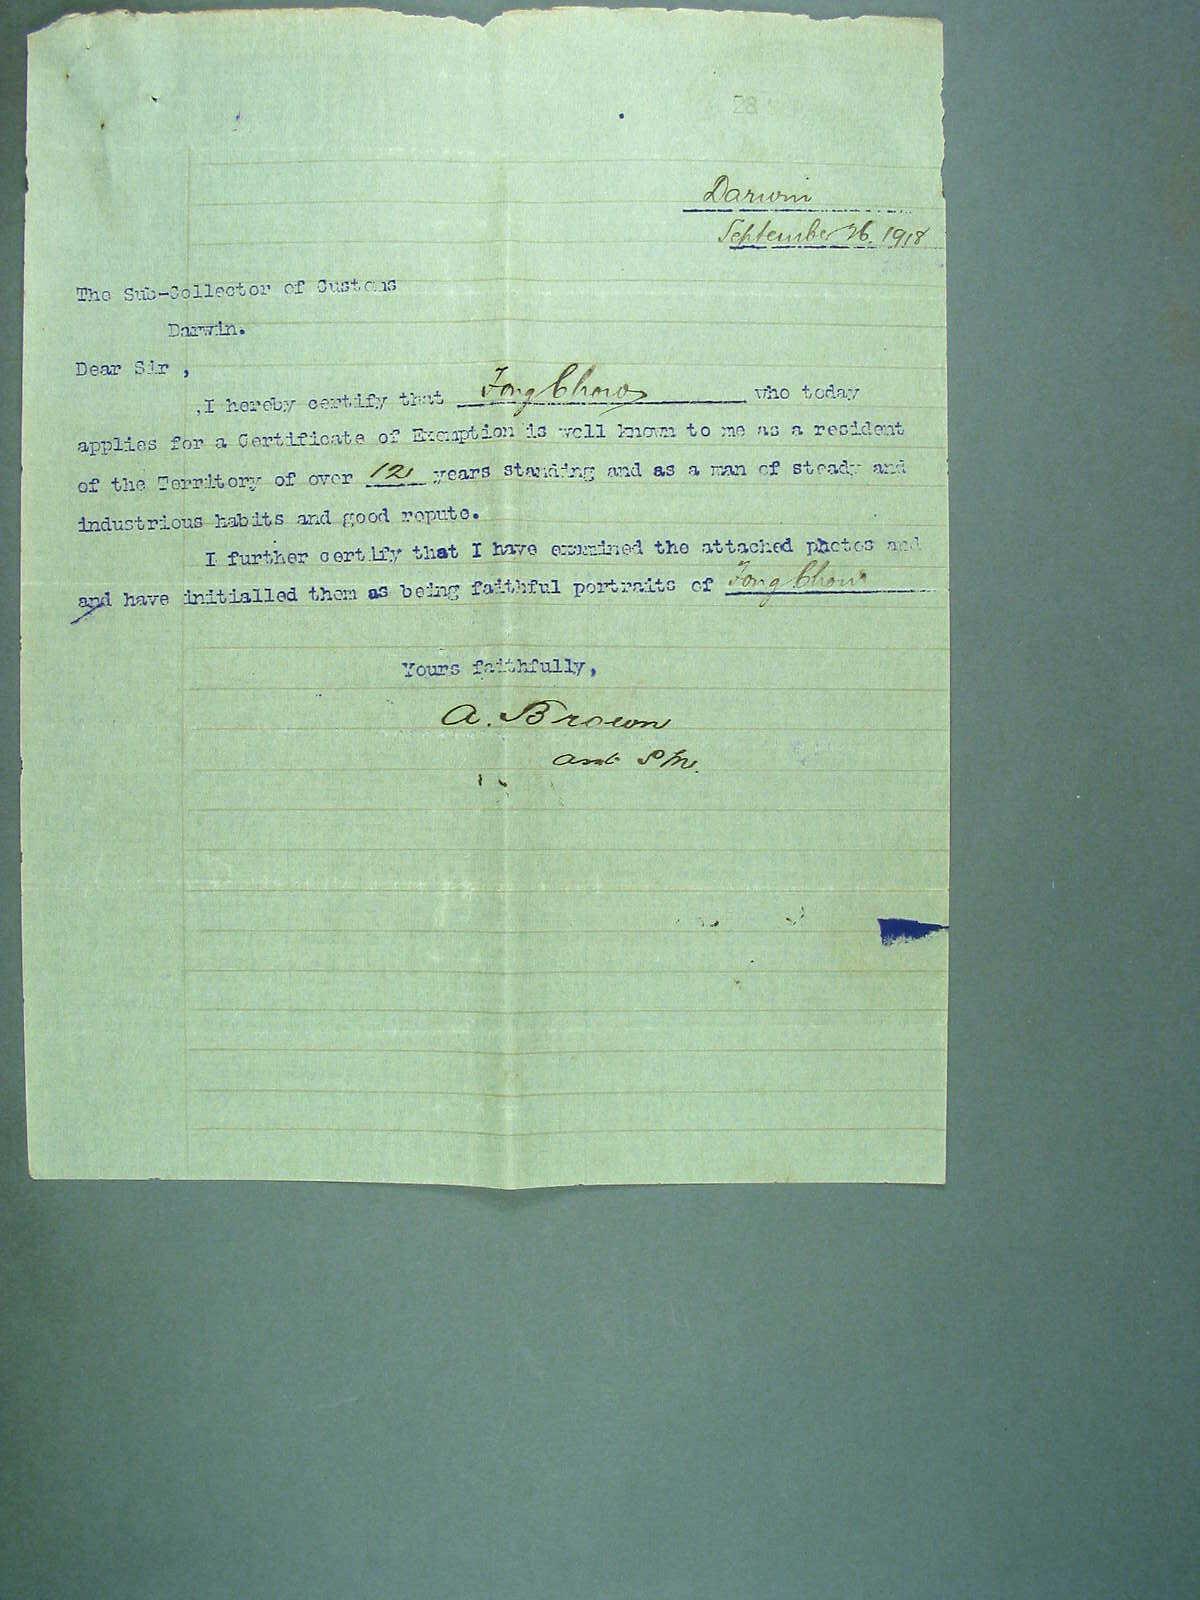 28
Darwin
September 26. 1918
The Sub-Collector of Customs
Darwin.
Dear Sir ,
,I hereby certify that Fong Chow who today
applies for a Certificate of Exemption is well known to me as a resident
of the Territory of over 12 years standing and as a man of steady and
industrious habits and good repute.
I further certify that I have examined the attached photos and
and have initialled them as being faithful portraits of Fong Chow
Yours faithfully,
A. Brown
asst P M.